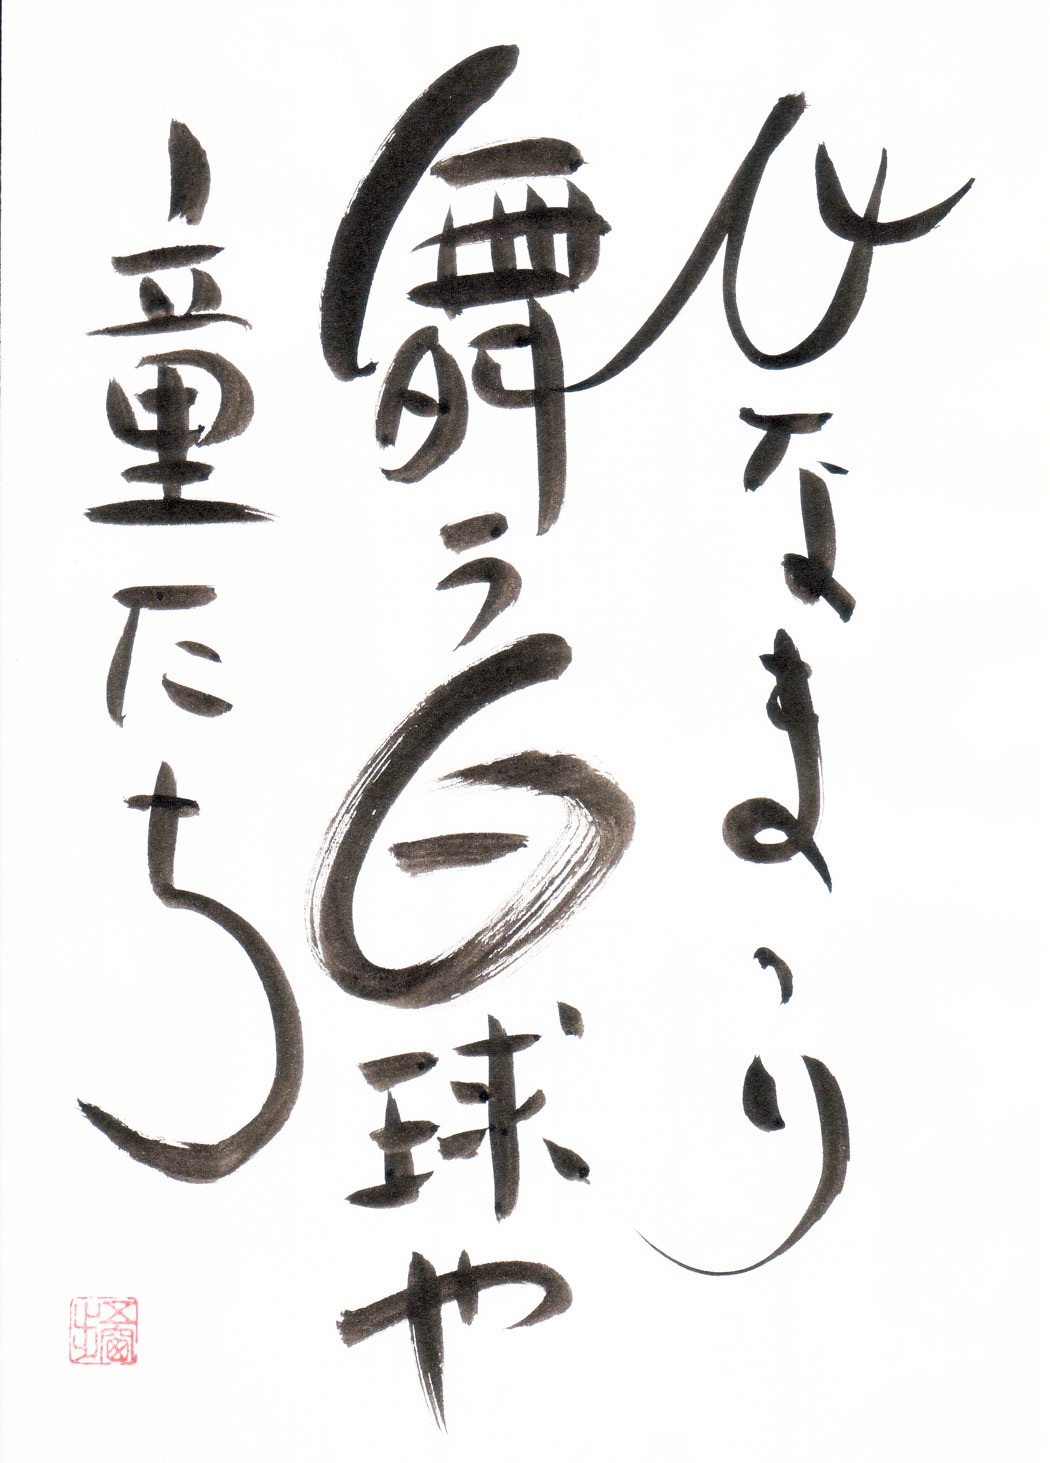 ひなまつり
舞う白球や
童たち